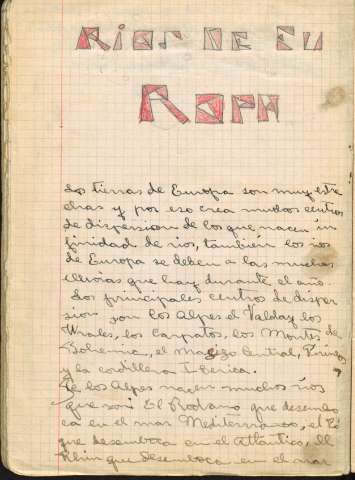 RIOS DE EU
ROPA
Las tierras de Europa son muy estre
chas y por eso crea muchos centros
de dispersion de los que nacen in
finidad de rios, tambien los rios
de Europa se deben a las muchas
lluvias que hay durante el año.
Los principales centros de disper
sion son los Alpes el Valday los
Urales, los Carpatos, los Montes de
Bohemia, el Macizo Central, Pirineos
y la cordillera Iberica.
De los Alpes nacen muchos rios
que son: El Rodano que desembo
ca en el mar Mediterraneo, el
que desemboca en el Atlántico, El
Rhin que desemboca en el mar